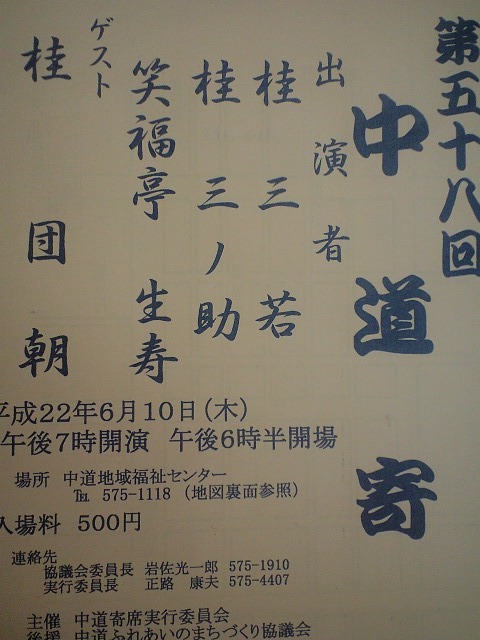 第五十八回
中道寄
出演者
桂 三若
桂 三ノ助
笑福亭 生寿
ゲスト
桂 団朝
平成22年6月10日(木)
午後7時開演 午後6時半開場
場所 中道地域福祉センター
℡ 575-1118 (地図裏面参照)
入場料 500円
連絡先
協議会委員長 岩佐光一郎 575-1910
実行委員長 正路 康夫 575-4407
主催 中道寄席実行委員会
後援 中道ふれあいのまちづくり協議会